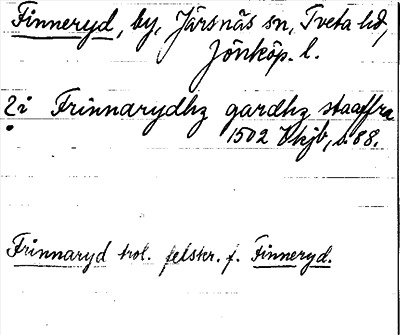 Finneryd, by, Järsnäs sn, Tveta hd,
Jönköp. l.
?i Frinnarydhz gardhz staaffra
1502 Vkjb, s. 88.
Frinnaryd trol. felskr. f. Finneryd.